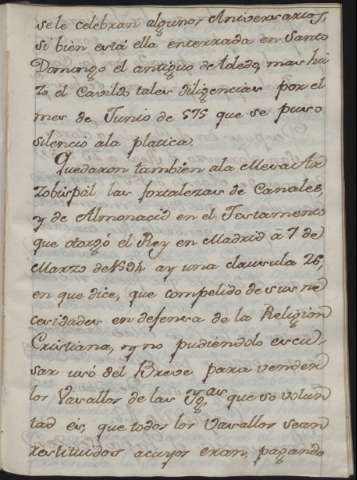 se le celebran algunos Aniversarios,
si bien està ella enterrada en Santo
Domingo el antiguo de Toledo, mas hi
zo el Cavildo tales diligencias por el
mes de Junio de 575 que se puso
silencio ala platica.
Quedaron tambien ala Mesa Ar
zobispàl las fortalezas de Canales,
y de Almonacid en el Testamento
que otorgó el Rey en Madrid à 7 de
Marzo de 1594 ay una clausula 26,
en que dice, que compelido de sus ne
cesidades en defensa de la Religion
Cristiana, y no pudiendolo escu
sar usó del Breve para vender
los Vasallos de las Yg.as que su volun
tad es, que todos los Vasallos sean
restituidos acuyos eran, pagando